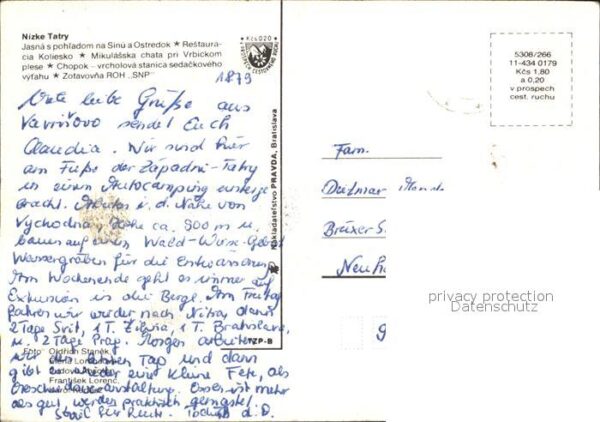 Nízke Tatry
Jasná s pohľadom na Sinu a Ostredok ★ Reštaura-
cia Koliesko ★ Mikulášska chata pri Vrbickom
plese ★ Chopok – vrcholová stanica sedačkového
výťahu ★ Zotavovňa ROH „SNP"
Kčs 0,20
1879
5308/266
11-434 0179
Kčs 1,80
a 0,20
v prospech
cest. ruchu
Viele liebe Grüße aus
Vavrišovo sendet Euch
Claudia. Wir sind hier
am Fuße der Západní-Tatry
in einem Autocamping unterge
bracht. Arbeiten i. d. Nähe von
Východná, Höhe ca. 800 m u.
bauen auf einem Wald-Wiese-Gebiet
Wassergräben für die Entwässerung
Am Wochenende geht es immer auf
Exkursion in die Berge. Am Freitag
fahren wir wieder nach Nitra, dann
2 Tage Svit, 1 T. Žilina, 1 T. Bratislava
u. 2 Tage Prag. Morgen arbeiten
wir den letzten Tag und dann
gibt es wieder eine kleine Fete, als
Abschiedsveranstaltung. Essen ist mehr
als gut, werden praktisch gemästet.
für heute. Tschüß d. O.
Foto: Oldřich Straněk,
František Lorenc,
Nakladateľstvo PRAVDA, Bratislava
TZP-B
Fam.
Dietmar
Brüxer S
Neu
privacy protection
Datenschutz